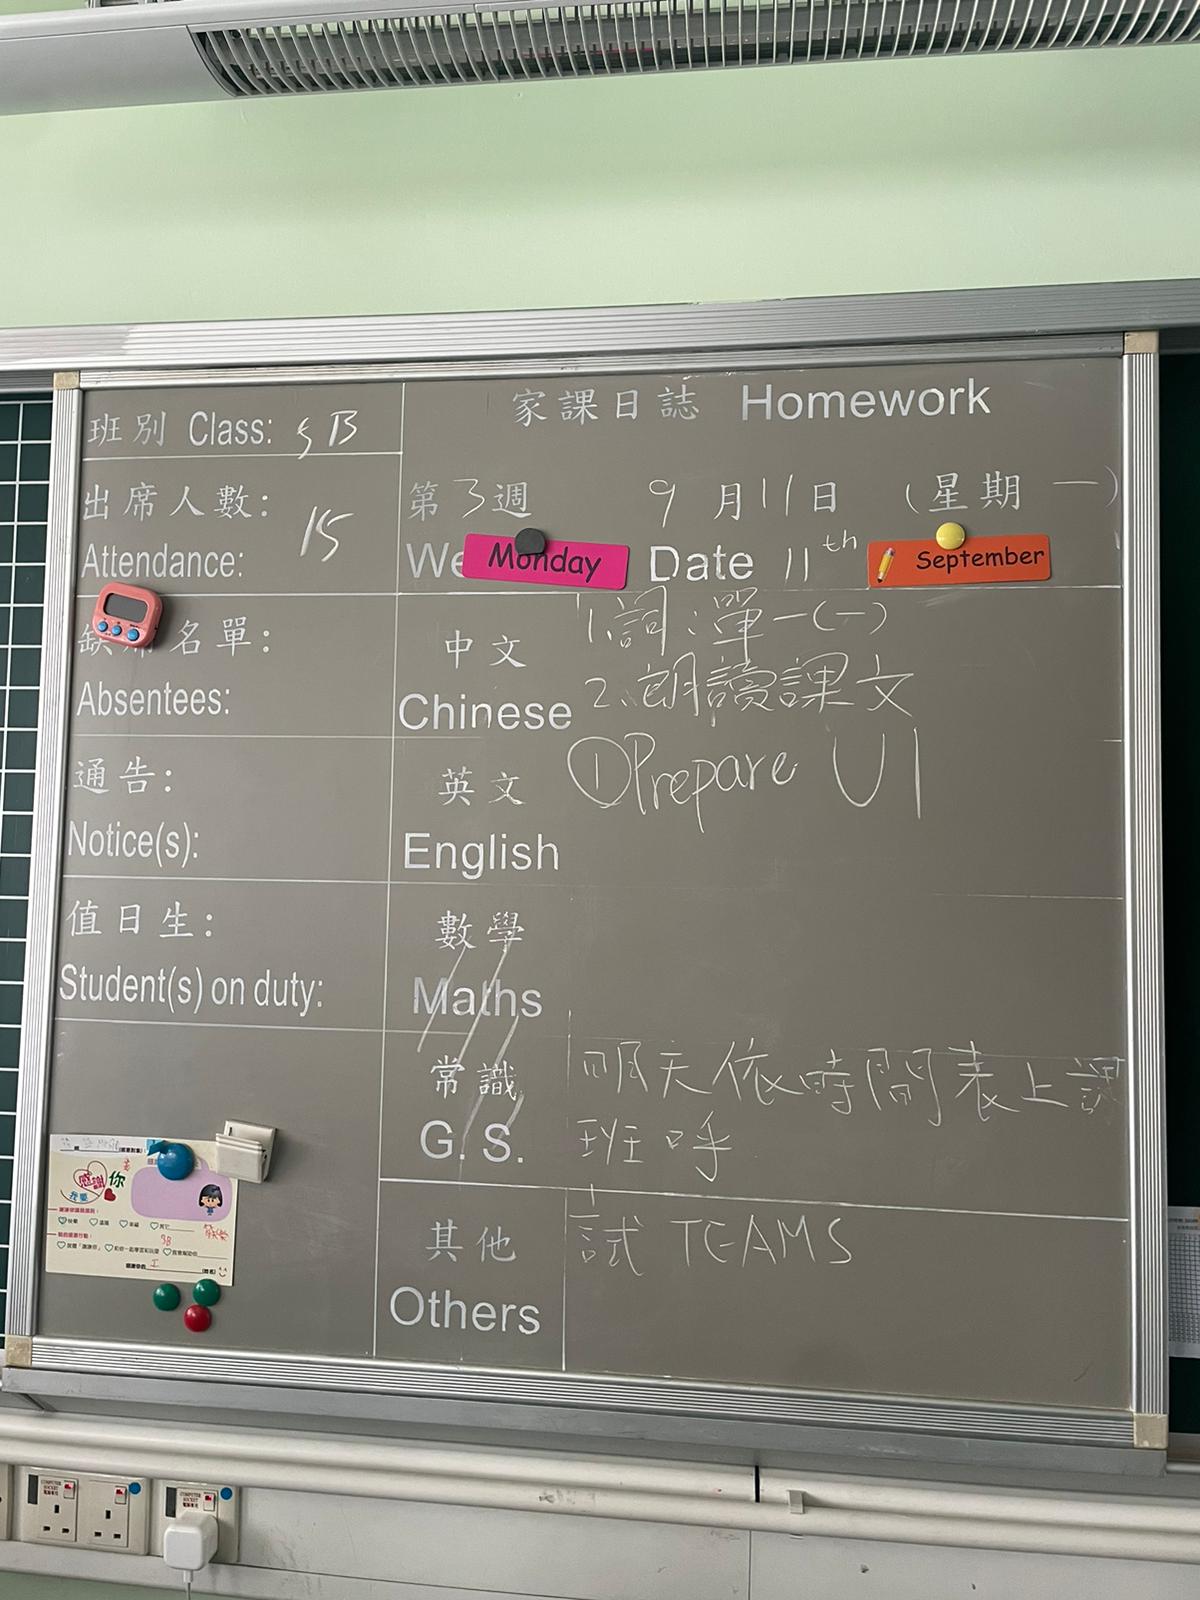 班別 Class: 5B
出席人數: 15
Attendance:
名單:
Absentees:
通告:
Notice(s):
值日生:
Student(s) on duty:
家課日誌 Homework
第3週 9月11日 (星期一)
We Monday Date 11th September
中文 1.詞:單一(一)
Chinese 2.朗讀課文
英文 ①Prepare U1
English
數學
Maths
常識 明天依時間表上課
G. S. 班呼
其他 試 TEAMS
Others
感謝你
我要
3B
COMPUTER SOCKET
COMPUTER SOCKET